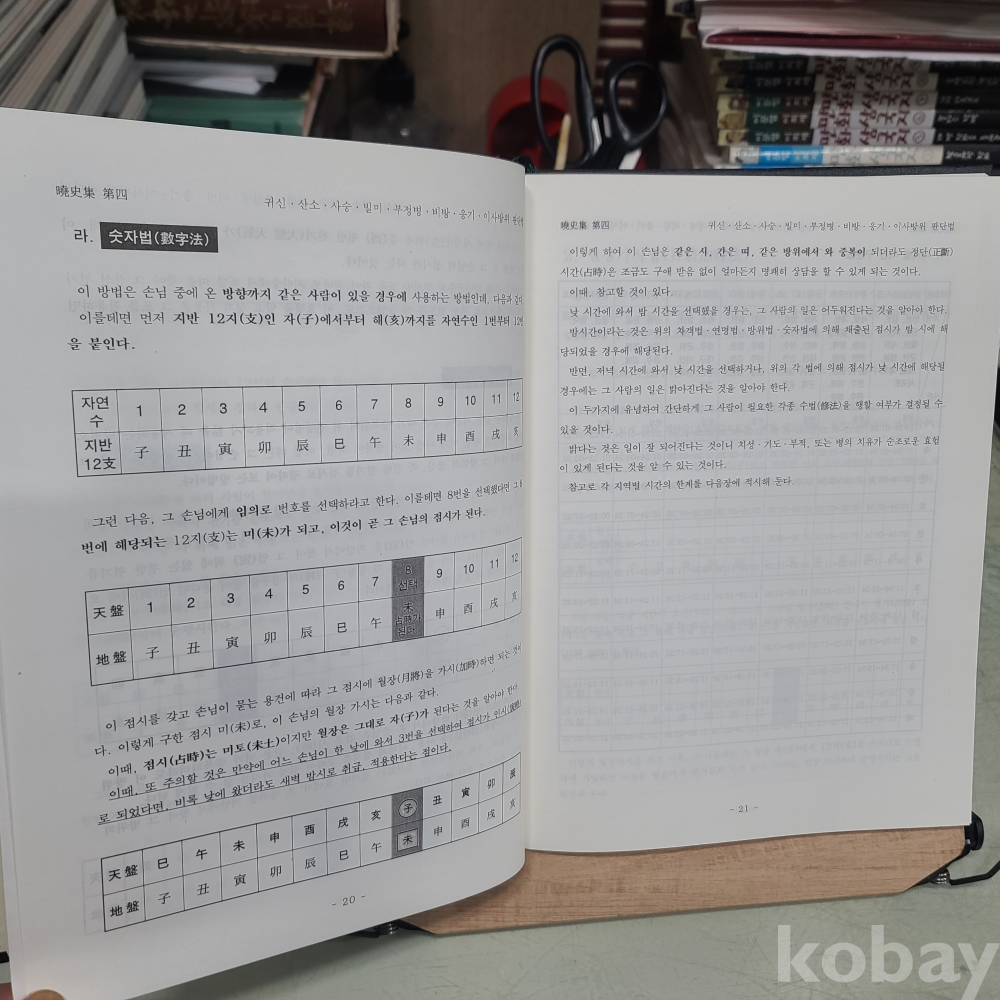 曉史集 第四
귀신·산소·사숭·빌미·부정병·비방·옹기·이사방위 판단법
라. 숫자법(數字法)
이 방법은 손님 중에 온 방향까지 같은 사람이 있을 경우에 사용하는 방법인데, 다음과 같다.
이를테면 먼저 지반 12지(支)인 자(子)에서부터 해(亥)까지를 자연수인 1번부터 12번
을 붙인다.
자연수 1 2 3 4 5 6 7 8 9 10 11 12
지반 12支 子 丑 寅 卯 辰 巳 午 未 申 酉 戌 亥
그런 다음, 그 손님에게 임의로 번호를 선택하라고 한다. 이를테면 8번을 선택했다면 그 8
번에 해당되는 12지(支)는 미(未)가 되고, 이것이 곧 그 손님의 점시가 된다.
天盤 1 2 3 4 5 6 7 8 선택 9 10 11 12
地盤 子 丑 寅 卯 辰 巳 午 未 占時가 된다 申 酉 戌 亥
이 점시를 갖고 손님이 묻는 용건에 따라 그 점시에 월장(月將)을 가시(加時)하면 되는 것이
다. 이렇게 구한 점시 미(未)로, 이 손님의 월장 가시는 다음과 같다.
이때, 점시(占時)는 미토(未土)이지만 월장은 그대로 자(子)가 된다는 것을 알아야 한다.
이때, 또 주의할 것은 만약에 어느 손님이 한 낮에 와서 3번을 선택하여 점시가 인시(寅時)
로 되었다면, 비록 낮에 왔더라도 새벽 밤시로 취급, 적용한다는 점이다.
天盤 巳 午 未 申 酉 戌 亥 子 丑 寅 卯 辰
地盤 子 丑 寅 卯 辰 巳 午 未 申 酉 戌 亥
- 20 -
曉史集 第四
귀신·산소·사숭·빌미·부정병·비방·옹기·이사방위 판단법
이렇게 하여 이 손님은 같은 시, 간은 띠, 같은 방위에서 와 중복이 되더라도 정단(正斷)
시간(占時)은 조금도 구애 받음 없이 얼마든지 명쾌히 상담을 할 수 있게 되는 것이다.
이때, 참고할 것이 있다.
낮 시간에 와서 밤 시간을 선택했을 경우는, 그 사람의 일은 어두워진다는 것을 알아야 한다.
밤시간이라는 것은 위의 차객법·연명법·방위법·숫자법에 의해 채출된 점시가 밤 시에 해
당되었을 경우에 해당된다.
반면, 저녁 시간에 와서 낮 시간을 선택하거나, 위의 각 법에 의해 점시가 낮 시간에 해당될
경우에는 그 사람의 일은 밝아진다는 것을 알아야 한다.
이 두가지에 유념하여 간단하게 그 사람이 필요한 각종 수법(修法)을 행할 여부가 결정될 수
있을 것이다.
밝다는 것은 일이 잘 되어진다는 것이니 치성·기도·부적, 또는 병의 치유가 순조로운 효험
이 있게 된다는 것을 알 수 있는 것이다.
참고로 각 지역별 시간의 한계를 다음장에 적시해 둔다.
- 21 -
kobay